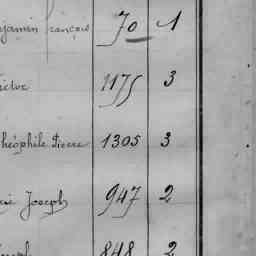 njamin françois 70 1
ictor 1175 3
héophile Pierre 1305 3
rie Joseph 947 2
seph 848 2